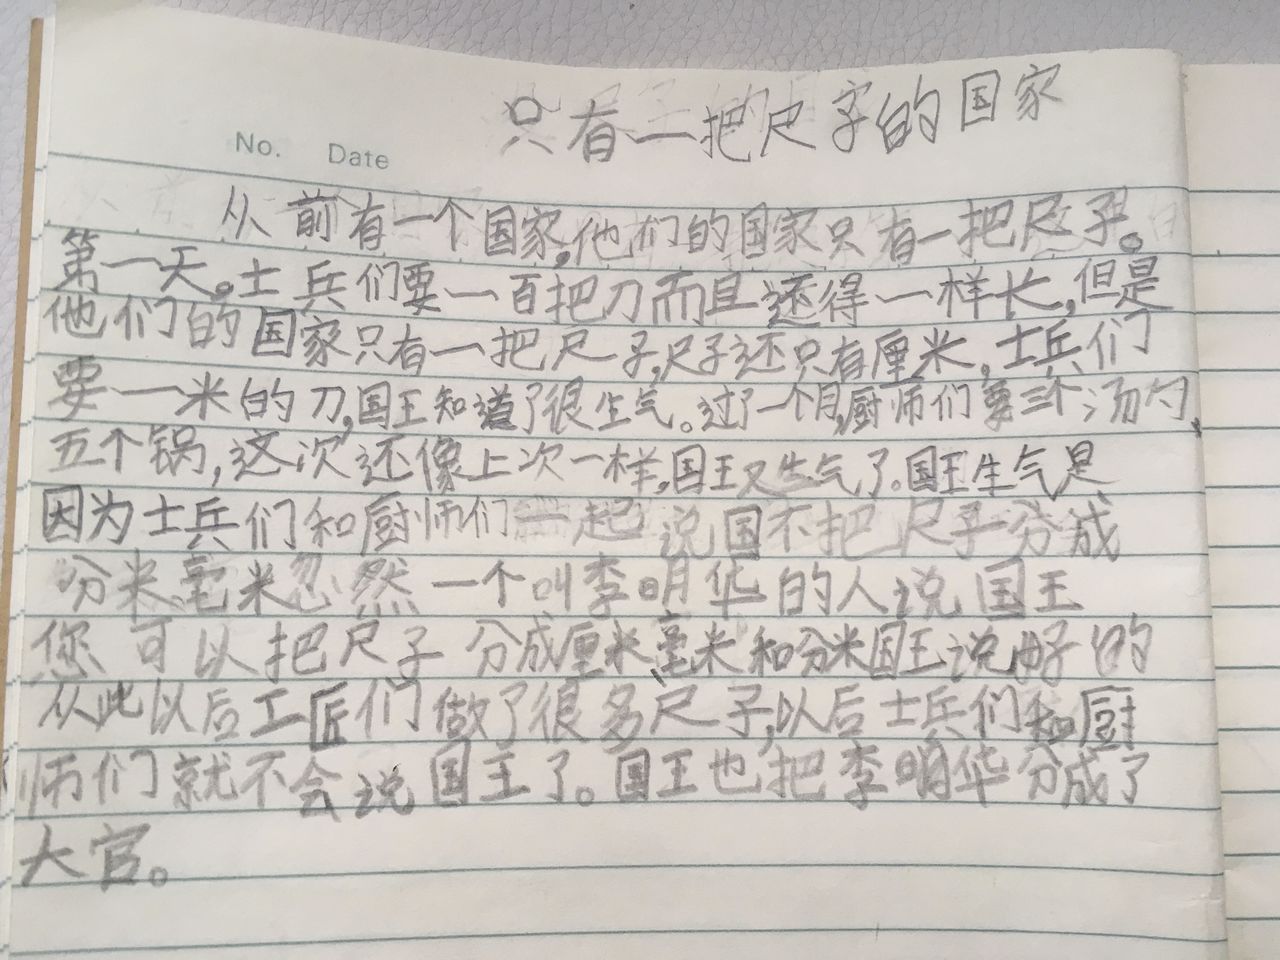 只有一把尺字的国家
No. Date
从前有一个国家,他们的国家只有一把尺子。
第一天。士兵们要一百把刀而且还得一样长,但是
他们的国家只有一把尺子,尺子还只有厘米,士兵们
要一米的刀,国王知道了很生气。过了一个月,厨师们要三个汤勺,
五个锅,这次还像上次一样,国王又生气了。国王生气是
因为士兵们和厨师们一起说国不把尺子分成
分米毫米忽然一个叫李明华的人说国王
您可以把尺子分成厘米、毫米和分米国王说好的
从此以后工匠们做了很多尺子,以后士兵们和厨
师们就不会说国王了。国王也把李明华分成了
大官。